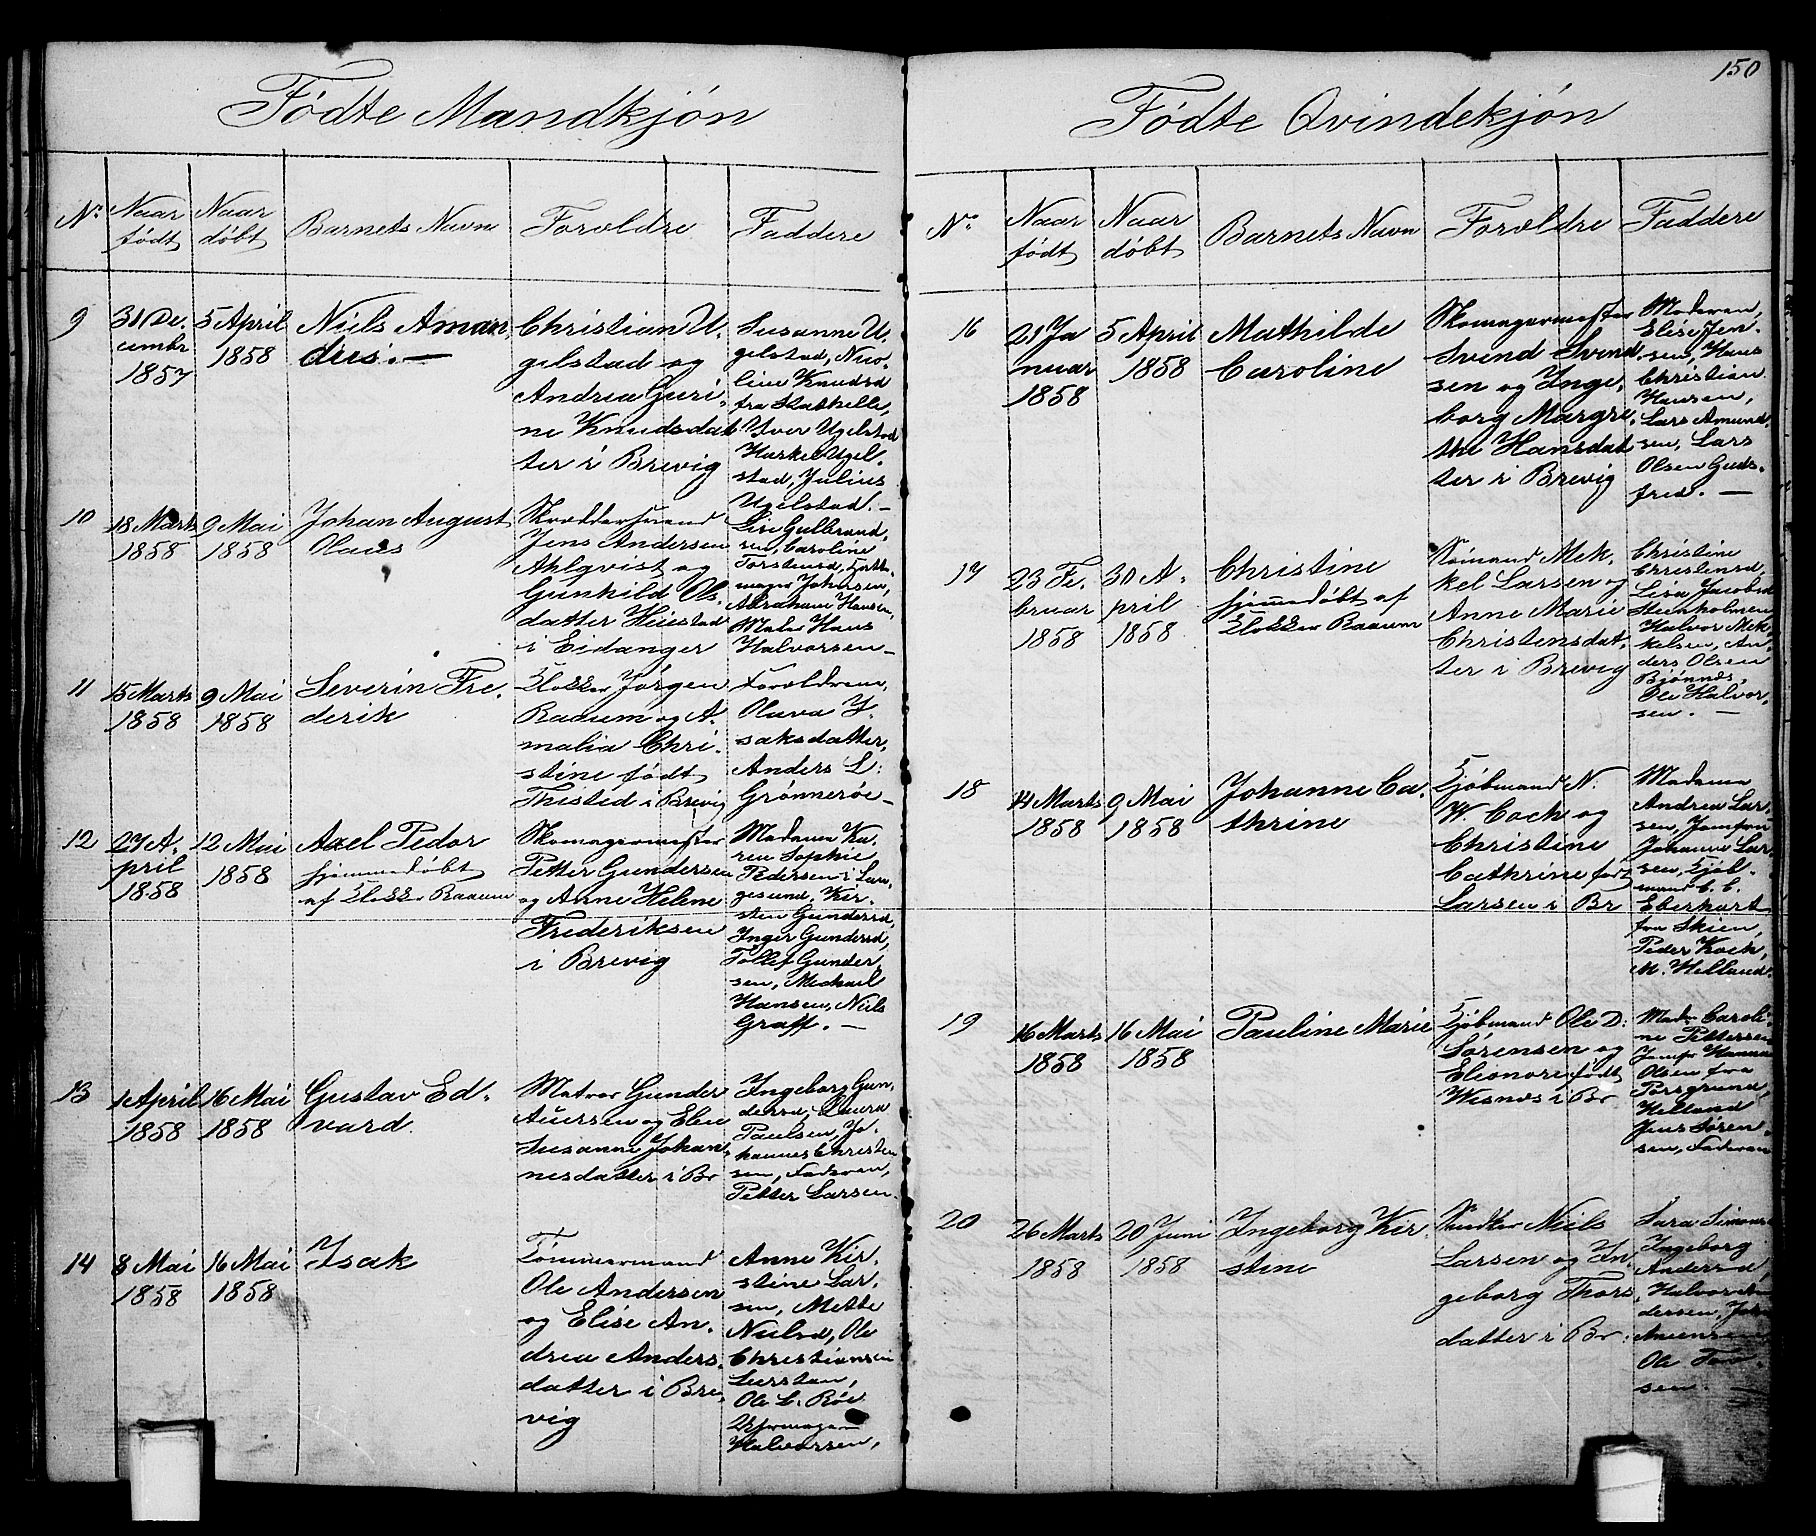 150
Fødte Mandkjøn
No
Naar født
Naar døbt
Barnets Navn
Forældre
Faddere
9
31 De-
cembr
1857
5 April
1858
Niels Aman-
dus. —
Christian U-
gelstad og
Andrea Guri-
ne Knudsdat-
ter i Brevig
Susanne U-
gelstad, Nico-
line Knudsd
fra Stathelle,
Iver Ugelstad
Ugel-
stad, Julius
Ugelstad. —
10
18 Marts
1858
9 Mai
1858
Johan August
Olaus
Skræddersvend
Jens Andersen
Ahlqvist og
Gunhild Ols-
datter Heistad
i Eidanger
Lise Gulbrand-
sen, Caroline
Torstensd,
mager Johnsen,
Abraham Hansen,
Maler Hans
Halvorsen —
11
15 Marts
1858
9 Mai
1858
Severin Fre-
derik
Klokker Jørgen
Raaum og A-
malia Chri-
stine født
Thisted i Brevig
Forældrene,
Olava I-
saksdatter,
Anders L:
Grønnerøe —
12
27 A-
pril
1858
12 Mai
1858
Axel Pedor
hjemmedøbt
af Klokker Raaum
Skomagermester
Petter Gundersen
og Anne Helene
Frederiksen
i Brevig
Madame Ka-
ren Sophie
Pedersen i Lan-
gesund, Kir-
sten Gundersd,
Inger Gundersd,
Tollef Gunder
sen, Michael
Hansen, Niels
Graff. —
13
1 April
1858
16 Mai
1858
Gustav Ed-
vard.
Matros Gunder
Auersen og Elen
Susanne Johan-
nesdatter i Br
Ingeborg Gun-
dersd, Laura
Paulsen, Jo-
hannes Christen
sen, Faderen,
Petter Larsen.
14
8 Mai
1858
16 Mai
1858
Isak
Tømmermand
Ole Andersen
og Elise An-
drea Anders-
datter i Bre-
vig
Anne Kir-
stine Lar-
sen, Mette
Nielsd, Ole
Christiansen
Ole L. Røe
Halvorsen,
Fødte Qvindekjøn
No
Naar født
Naar døbt
Barnets Navn
Forældre
Faddere
16
21 Ja
nuar
1858
5 April
1858
Mathilde
Caroline
Skomagermester
Svend Svend-
sen og Inge-
borg Margre-
the Hansdat
ter i Brevig
Moderen,
Elise Jen-
sen, Hans
Christian
Hansen,
Lars Amund-
sen, Lars
Olsen Guds-
fred. —
17
23 Fe-
bruar
1858
30 A-
pril
1858
Christine
hjemmedøbt af
Klokker Raaum
Sømand Mek-
kel Larsen og
Anne Marie
Christensdat-
ter i Brevig
Christine
Christensd,
Lisa Jacobsd
Steenholmen
Halvor Mek-
kelsen, An-
ders Olsen
Bjønnes,
Ole Halvor-
sen. —
18
14 Marts
1858
9 Mai
1858
Johanne Ca-
thrine
Kjøbmand N.
W. Coch og
Christine
Cathrine født
Larsen i Br
Madame
Andrea Lar-
sen, Jomfru
Johanne Lar-
sen, Kjøb-
mand C. C.
Eberhart
fra Skien,
Peder Kock,
M. Helland.
19
16 Marts
1858
16 Mai
1858
Pauline Marie
Kjøbmand Ole D:
Sørensen og
Eleonore født
Wisnes i Br
Mad. Caroli-
ne Pettersen
Jomfr Hanna
Olsen fra
Porsgrund,
Helland
Jens Søren-
sen, Faderen
20
26 Marts
1858
20 Juni
1858
Ingeborg Kir-
stine
Snedker Niels
Larsen og In-
geborg Thors-
datter i Br:
Sara Simons
Ingeborg
Andersd,
Halvor An-
dersen,
Ole
sen. —